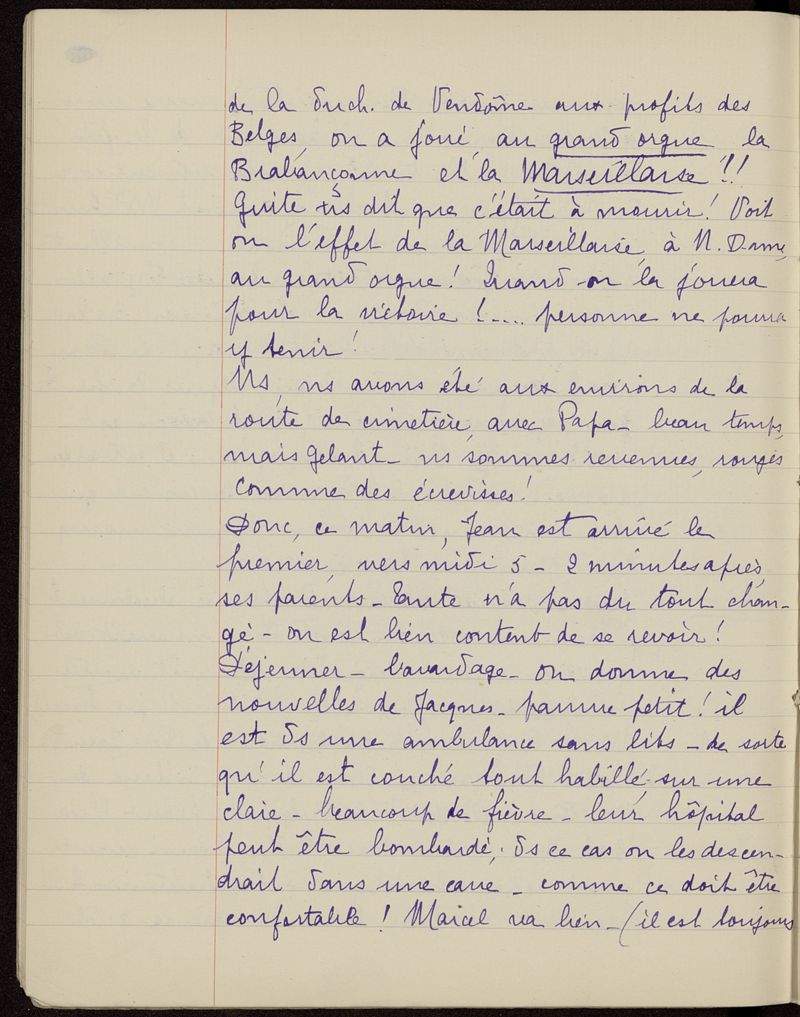 de la duch. de Vendôme aux profits des
Belges, on a joué, au grand orgue, la
Brabançonne et la Marseillaise !!
Guite ns dit que c'était à mourir ! Voit
on l'effet de la Marseillaise, à N. Dame,
au grand orgue ! Quand on la jouera
pour la victoire !.... personne ne pourra
y tenir !
Ns, ns avons été aux environs de la
route de cimetière, avec Papa - beau temps,
mais gelant - ns sommes revenues, rouges
comme des écrevisses !
Donc, ce matin, Jean est arrivé le
premier, vers midi 5 - 2 minutes après,
ses parents - Tante n'a pas du tout chan-
gé - on est bien content de se revoir !
Déjeuner - bavardage - on donne des
nouvelles de Jacques - pauvre petit ! il
est ds une ambulance sans lits - de sorte
qu'il est couché tout habillé sur une
claie - beaucoup de fièvre - leur hôpital
peut être bombardé, ds ce cas on les descen-
drait dans une cave - comme ce doit être
confortable ! Marcel va bien - (il est toujours